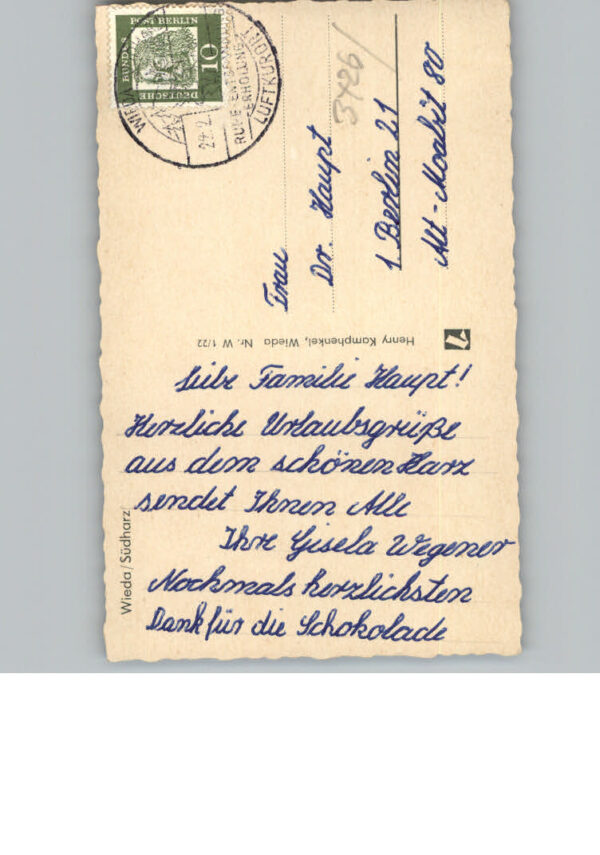 DEUTSCHE
BUNDES
POST BERLIN
10
WIEDA
29.2
RUHE-ENTSPANNUNG
ERHOLUNG
LUFTKURORT
3426/
Frau
Dr. Haupt
1 Berlin 21
Alt-Moabit 80
Henry Kamphenkel, Wieda Nr. W 1/22
Liebe Familie Haupt!
Herzliche Urlaubsgrüße
aus dem schönen Harz
sendet Ihnen Alle
Ihre Gisela Wegener
Nochmals herzlichsten
Dank für die Schokolade
Wieda/Südharz